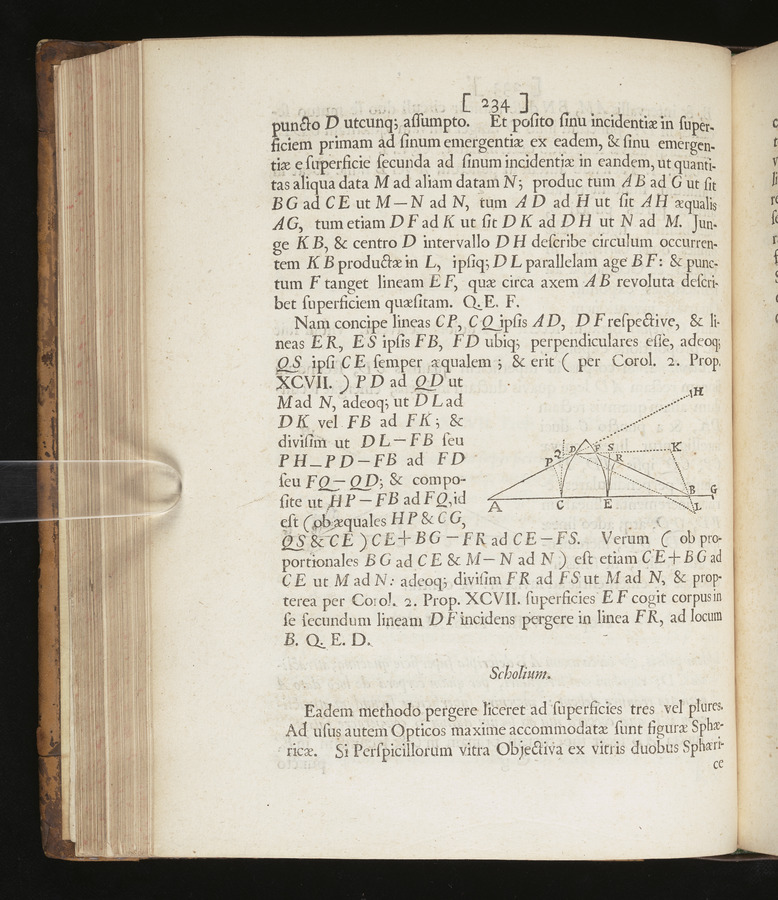 [ 234 ]
puncto D utcunq; assumpto. Et posito sinu incidentiæ in super-
ficiem primam ad sinum emergentiæ ex eadem, & sinu emergen-
tiæ e superficie secunda ad sinum incidentiæ in eandem, ut quanti-
tas aliqua data M ad aliam datam N; produc tum AB ad G ut sit
BG ad CE ut M—N ad N, tum AD ad H ut sit AH æqualis
AG, tum etiam DF ad K ut sit DK ad DH ut N ad M. Jun-
ge KB, & centro D intervallo DH describe circulum occurren-
tem KB productæ in L, ipsiq; DL parallelam age BF: & punc-
tum F tanget lineam EF, quæ circa axem AB revoluta descri-
bet superficiem quæsitam. Q.E. F.
Nam concipe lineas CP, CQ ipsis AD, DF respective, & li-
neas ER, ES ipsis FB, FD ubiq; perpendiculares esse, adeoq;
QS ipsi CE semper æqualem ; & erit ( per Corol. 2. Prop.
XCVII. ) PD ad QD ut
M ad N, adeoq; ut DL ad
DK vel FB ad FK; &
divisim ut DL—FB seu
PH—PD—FB ad FD
seu FQ—QD; & compo-
site ut HP—FB ad FQ, id
est ( ob æquales HP & CG,
QS & CE ) CE+BG—FR ad CE—FS. Verum ( ob pro-
portionales BG ad CE & M—N ad N ) est etiam CE+BG ad
CE ut M ad N: adeoq; divisim FR ad FS ut M ad N, & prop-
terea per Corol. 2. Prop. XCVII. superficies EF cogit corpus in
se secundum lineam DF incidens pergere in linea FR, ad locum
B. Q. E. D.
H
Q D F S K
P R
A C E B G
L
Scholium.
Eadem methodo pergere liceret ad superficies tres vel plures.
Ad usus autem Opticos maxime accommodatæ sunt figuræ Sphæ-
ricæ. Si Perspicillorum vitra Objectiva ex vitris duobus Sphæri-
ce